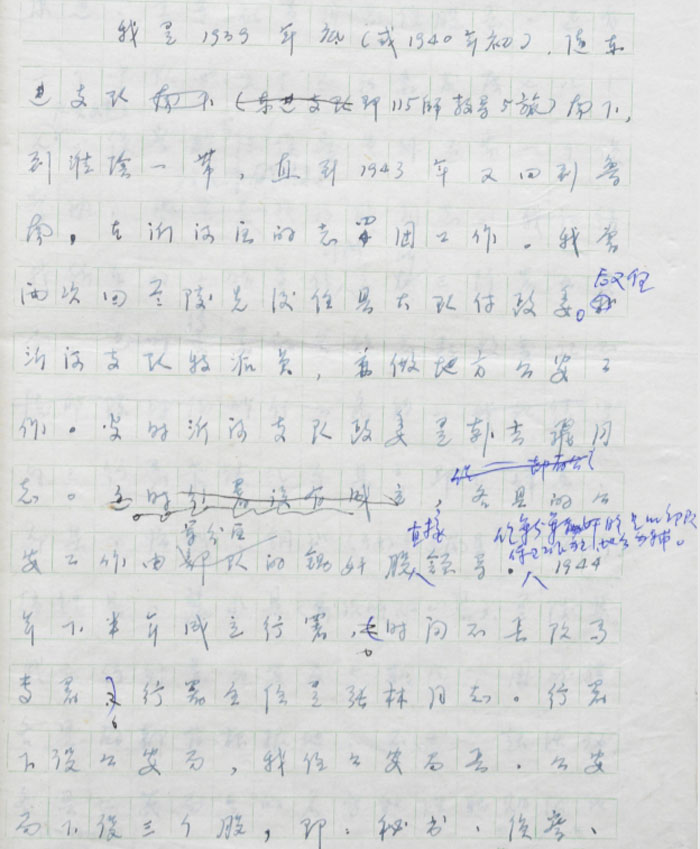 我是1939年秋(或1940年初),随东
进支队南下(东进支队即115师教导5旅)南下,
到淮阴一带,直到1943年又回到鲁
南,在沂河区的志 团工作。我曾
两次回兰陵先后任县大队付政委。后又任
沂河支队特派员,兼做地方公安工
作。当时沂河支队政委是郭吉 同
志。这时行署没有成立,各县的公
安工作由军分区部队的锄奸股直接领导。1944
年下半年成立行署,时间不长改为
专署,行署主任是张林同志。行署
下设公安局,我任公安局长。公安
局下设三个股,即:秘书、侦察、